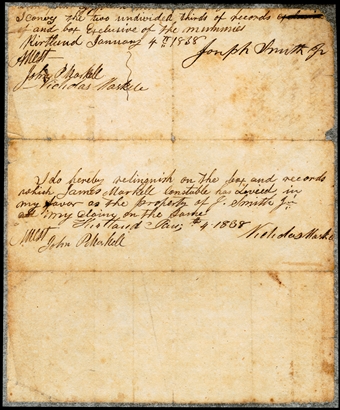 I convey the two undivided thirds of records
of and box exclusive of the mummies
Kirtland January 4th 1838
Joseph Smith Jr
Attest
John P Markell
Nicholas Markele
I do hereby relinquish on the box and records
which James Markell Constable has levied in
my favor as the property of J. Smith Jr
all my claim on the same
Kirtland Jany 4th 1838
Nicholas Marke
Attest
John P. Markell